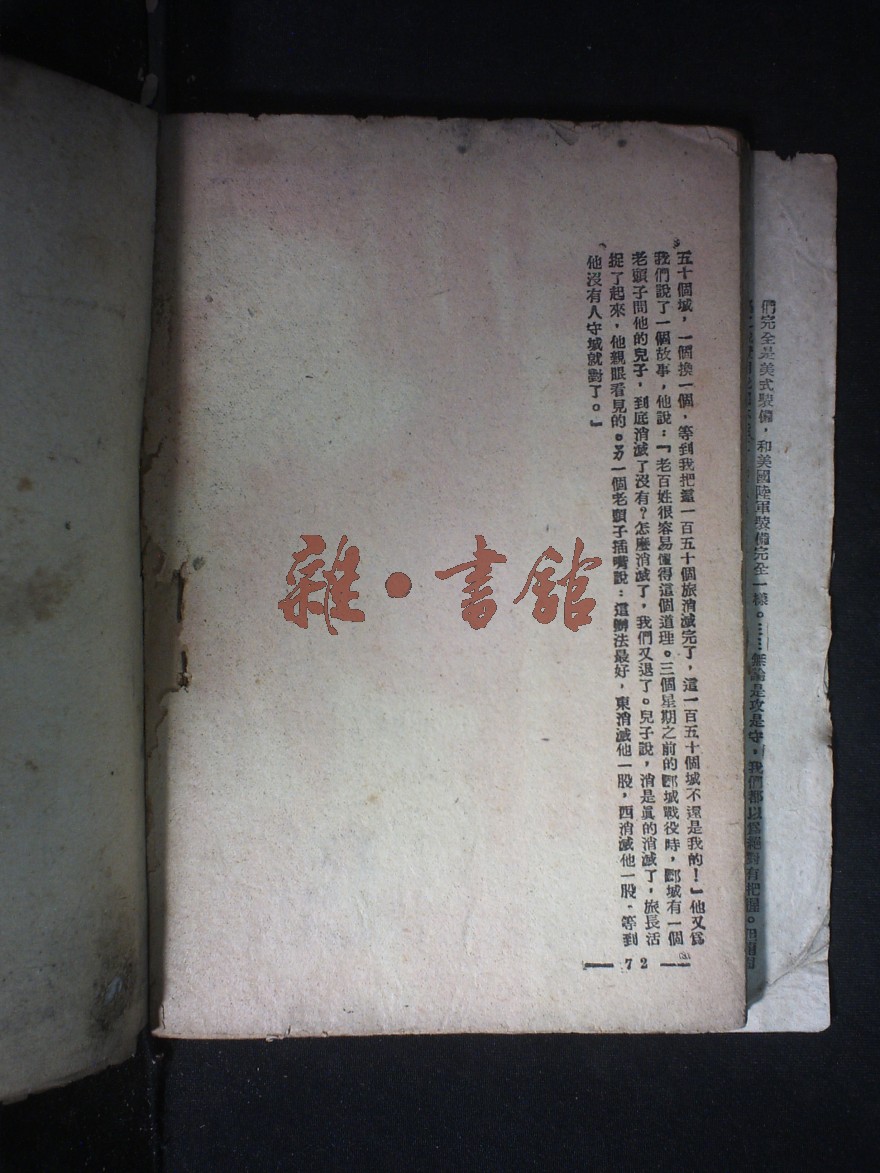 們完全是美式裝備，和美國陸軍裝備完全一樣。……無論是攻是守，我們都以爲絕對有把握。
五十個城，一個換一個，等到我把這一百五十個旅消滅完了，這一百五十個城不還是我的！』他又爲
我們說了一個故事，他說：『老百姓很容易懂得這個道理。三個星期之前的鄄城戰役時，鄄城有一個
老頭子問他的兒子，到底消滅了沒有？怎麼消滅了，我們又退了。兒子說，消是眞的消滅了，旅長活
捉了起來，他親眼看見的。另一個老頭子插嘴說：這辦法最好，東消滅他一股，西消滅他一股，等到
他沒有人守城就對了。』
72
雜·書館